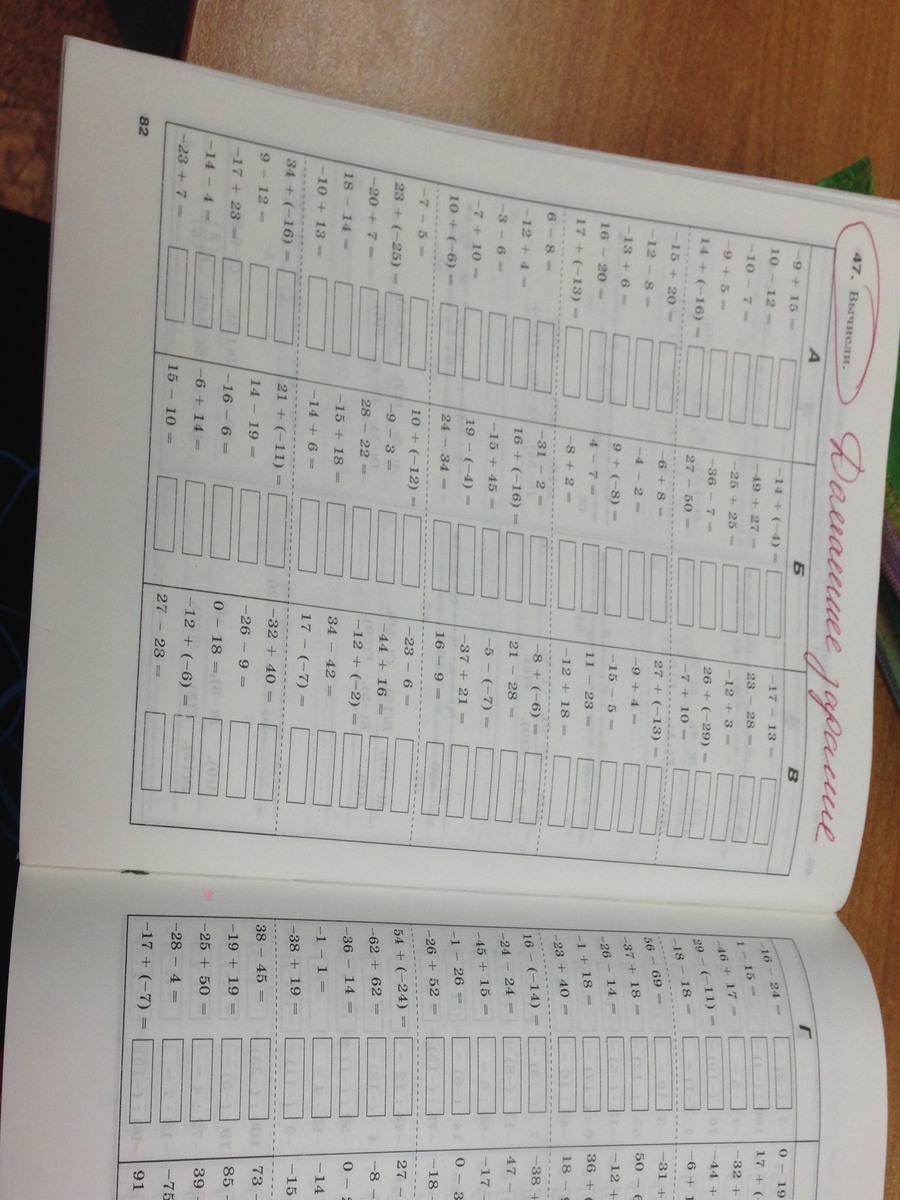 47. Вычисли.
Домашнее задание
А Б В
−9 + 15 = −14 + (−4) = −17 − 13 =
10 − 12 = −49 + 27 = 23 − 28 =
−10 − 7 = −25 + 25 = −12 + 3 =
−9 + 5 = −36 − 7 = 26 + (−29) =
14 + (−16) = 27 − 50 = −7 + 10 =
−15 + 20 = −6 + 8 = 27 + (−13) =
−12 − 8 = −4 − 2 = −9 + 4 =
−13 + 6 = 9 + (−8) = −15 − 5 =
16 − 20 = 4 − 7 = 11 − 23 =
17 + (−13) = −8 + 2 = −12 + 18 =
6 − 8 = −31 − 2 = −8 + (−6) =
−12 + 4 = 16 + (−16) = 21 − 28 =
−3 − 6 = −15 + 45 = −5 − (−7) =
−7 + 10 = 19 − (−4) = −37 + 21 =
10 + (−6) = 24 − 34 = 16 − 9 =
−7 − 5 = 10 + (−12) = −23 − 6 =
23 + (−25) = −9 − 3 = −44 + 16 =
−20 + 7 = 28 − 22 = −12 + (−2) =
18 − 14 = −15 + 18 = 34 − 42 =
−10 + 13 = −14 + 6 = 17 − (−7) =
34 + (−16) = 21 + (−11) = −32 + 40 =
9 − 12 = 14 − 19 = −26 − 9 =
−17 + 23 = −16 − 6 = 0 − 18 =
−14 − 4 = −6 + 14 = −12 + (−6) =
−23 + 7 = 15 − 10 = 27 − 23 =
82
Г
−16 − 24 = 0 − 19
1 − 15 = 17 + (
−46 + 17 = −32 +
29 − (−11) = −44
−18 − 18 = −6 +
56 − 69 = −31 +
−37 + 18 = 50 − 6
−26 − 14 = −12 +
−1 + 18 = 36 +
−23 + 40 = 18 −
16 − (−14) = −38 +
−24 − 24 = 47 −
−45 + 15 = −17
−1 − 26 = 0 − 3
−26 + 52 = −18
54 + (−24) = 27 −
−62 + 62 = −8 −
−36 − 14 = 0 −
−1 − 1 = −14
−38 + 19 = −15
38 − 45 = 73 −
−19 + 19 = 85
−25 + 50 = 39
−28 − 4 = −75
−17 + (−7) = 91